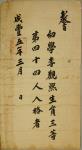 敎旨
幼學李觀生員三等
第四十四人入格者
咸豐五年三月 日